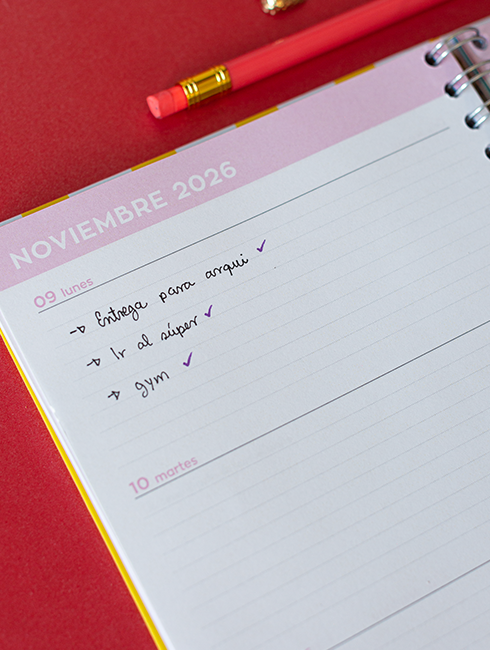 NOVIEMBRE 2026
09 lunes
→ Entrega para arqui ✓
→ Ir al súper ✓
→ gym ✓
10 martes